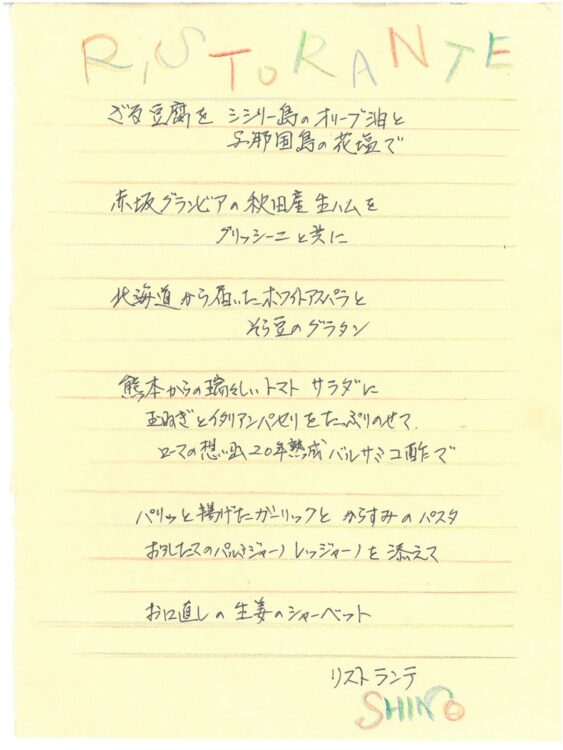 RISTORANTE
ざる豆腐を シシリー島のオリーブ油と
与那国島の花塩で
赤坂グランビアの秋田産生ハムを
グリッシーニと共に
北海道から届いたホワイトアスパラと
そら豆のグラタン
熊本からの瑞々しいトマト サラダに
玉ねぎとイタリアンパセリをたっぷりのせて.
ローマの想い出20年熟成バルサミコ酢で
パリッと揚げたガーリックと からすみのパスタ
おろしたてのパルミジャーノ レッジャーノを 添えて
お口直しの 生姜のシャーベット
リストランテ
SHINO